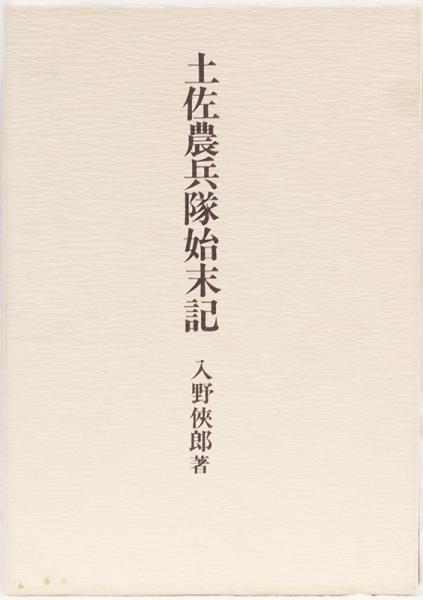 土佐農兵隊始末記
入野俠郎著